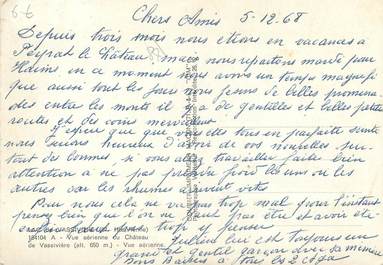 Chers Amis 5-12-68
Depuis trois mois nous étions en vacances à
Peyrat le Château mais nous repartons mardi pour
en ce moment nous avons un temps magnifi
que aussi tout les jours nous fesons de belles promena
des entre les monts il y a de gentilles et belles petites
routes et des coins merveilleux
J'espère que que vous êtes tous en parfaite santé
nous serions heureux d'avoir de vos nouvelles sur
tout des bonnes, si vous allez travailler faite bien
attention a ne pas prendre froid les uns ou les
autres car les rhumes arrivent vite
Pour nous cela ne va pas trop mal pour l'instant
pensez bien que l'on ne peut pas être et avoir été
trop y penser
VASSIVIÈRE
184104 A - Vue aérienne du Château
de Vassivière (alt. 650 m.) - Vue aérienne.
Julien lui est toujours un
grand et gentil garçon avec sa mémère
nos Baisers à tous les 2